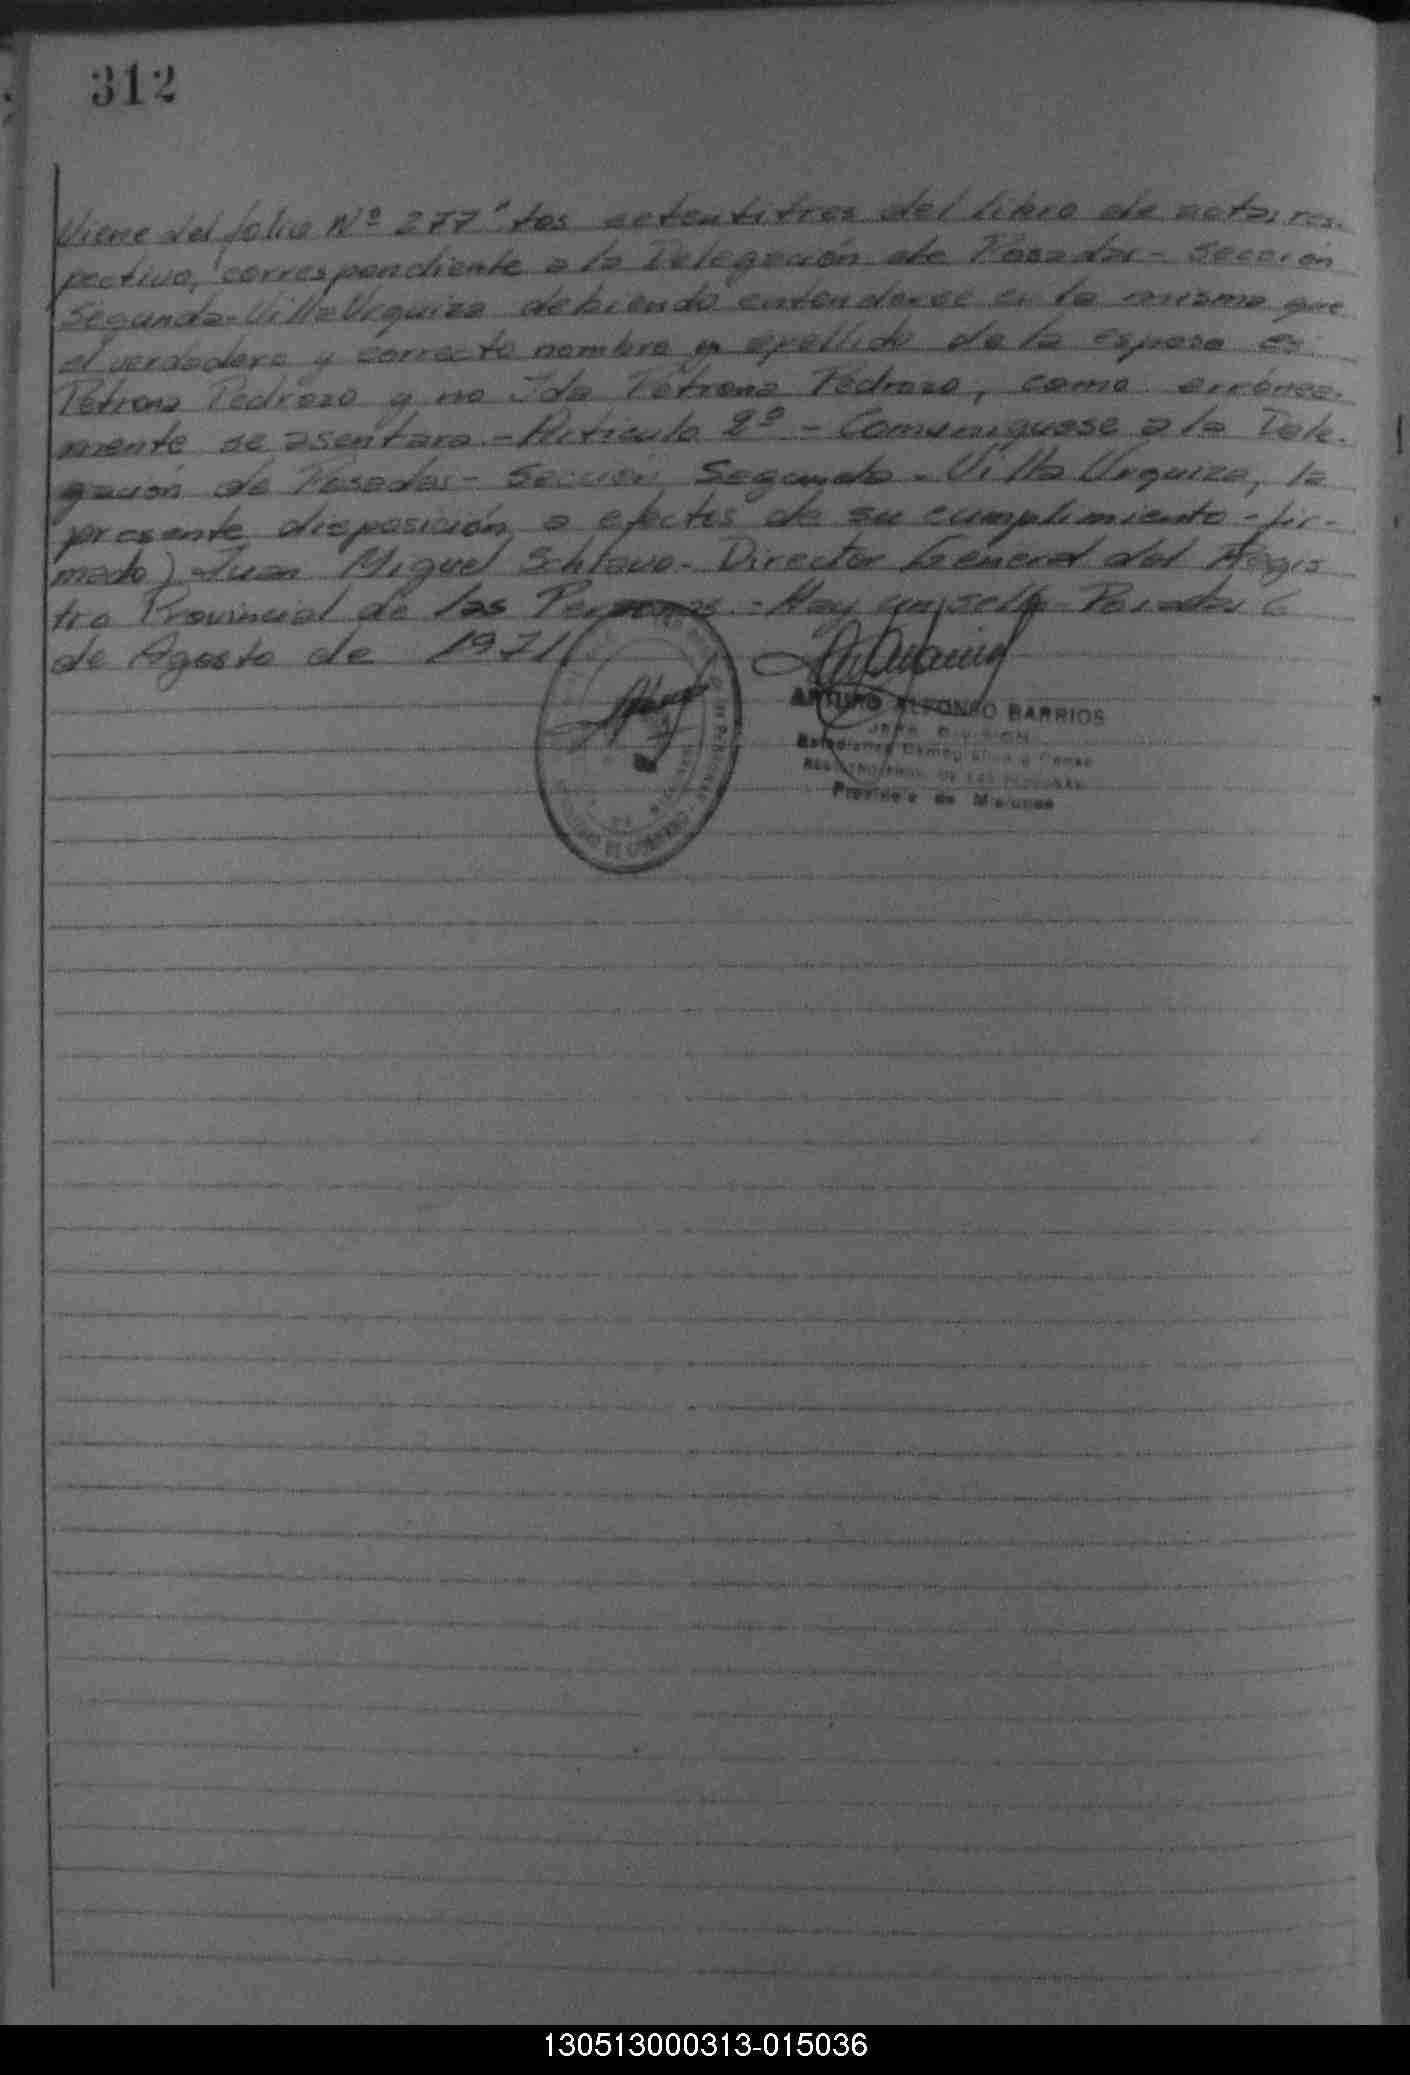 312
Viene del folio Nº 277 "tos setentitres del libro de actas res-
pectivo, correspondiente a la Delegación de Posadas - Sección
Segunda - Villa Urquiza debiendo entenderse en la misma que
el verdadero y correcto nombre y apellido de la esposa es:
Petrona Pedrozo y no Ida Petrona Pedrozo, como erronea-
mente se asentara - Articulo 2º - Comuniquese a la Dele-
gación de Posadas - Sección Segunda - Villa Urquiza, la
presente disposición a efectos de su cumplimiento - fir-
mado) Juan Miguel Schiavo - Director General del Regis
tro Provincial de las Personas - Hay un sello - Posadas 6
de Agosto de 1971
ARTURO ALFONSO BARRIOS
JEFE DIVISION
Provincia de Misiones
130513000313-015036